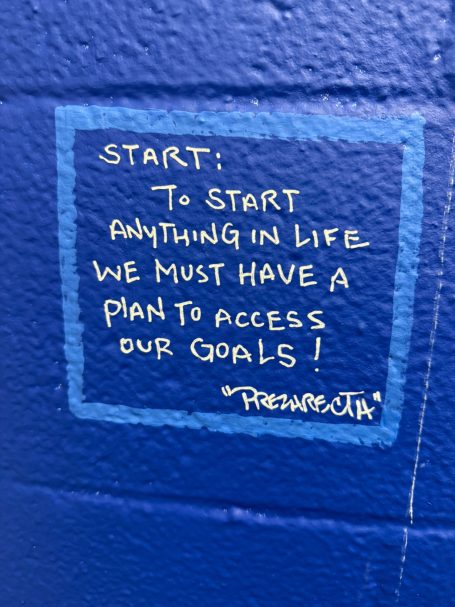 START:
TO START
ANYTHING IN LIFE
WE MUST HAVE A
PLAN TO ACCESS
OUR GOALS!